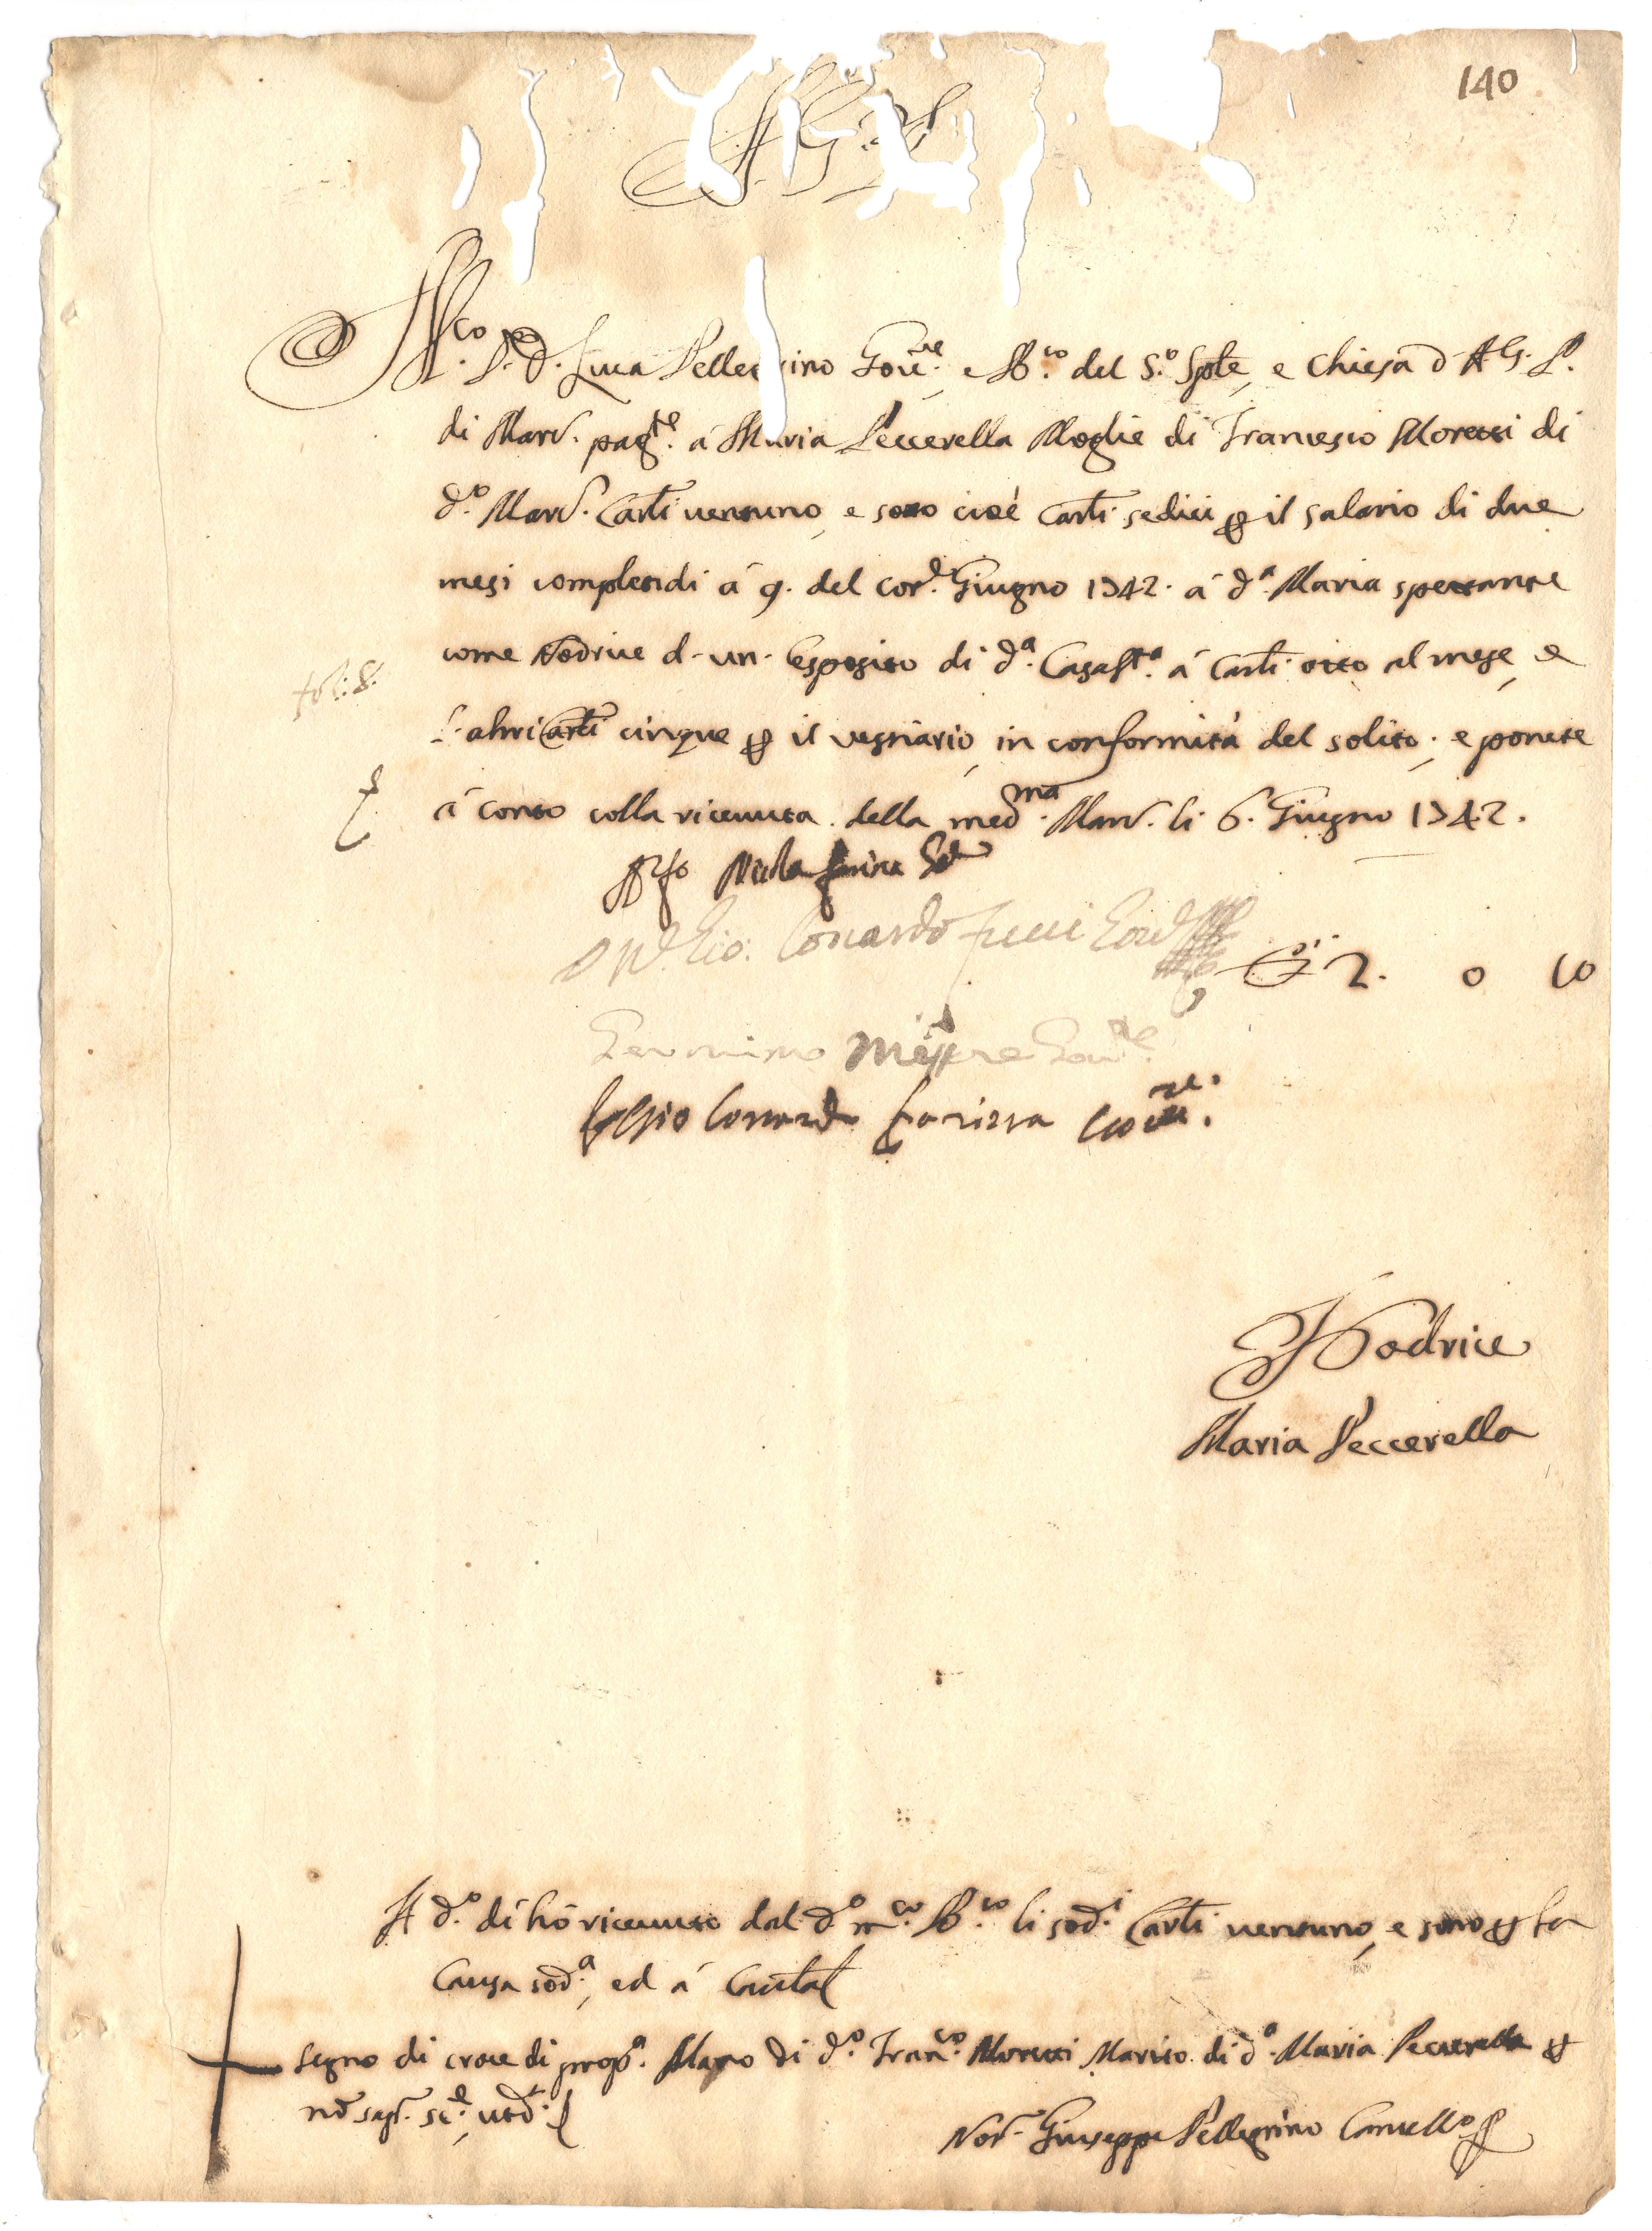 140
A. G. P.
M.co S. D. Luca Pelleg rino Gov.re, e B.co del S.o Sple, e Chiesa d A. G. P.
di Mard. pag.te á Maria Peccerella Moglie di Francesco Moretti di
d.o Mard. Carli ventuno, e sono cioè Carli sedici p il salario di due
mesi complendi á 9. del cor.e Giugno 1742. á d.a Maria spettante
come Nodrice d. un. esposito di d.a Casa S.ta á Carli otto al mese, e
l'altri Carli cinque p il vestiario, in conformità del solito; e ponete
á conto colla ricevuta della med.ma Mard. li 6. Giugno 1742.
fol: 8.
Nicola farina
Gio: Conardo
D. 2. 0 10
Geronimo Gov.re
Conardo farina Gov.re
Nodrice
Maria Peccerella
A d.o dí hó ricevuto dal d.o m.co B.co li sod.i Carli ventuno, e sono p la
causa sod.a, ed á Cautela
Segno di croce di prop.a Mano di d.o Fran.co Moretti Marito di d.a Maria Peccerella p
nō sap.r sc.e, ut d.t
Not.r Giuseppe Pellegrino Cancell.o